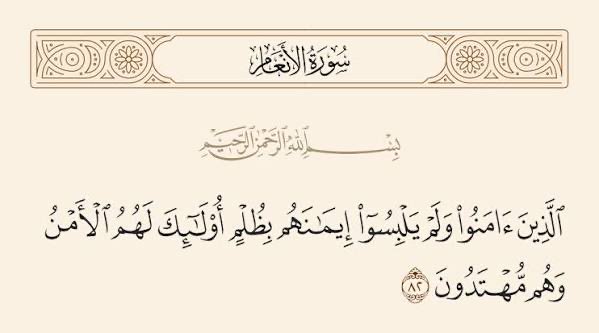 سُورَةُ الأَنْعَامِ
بِسْمِ اللَّهِ الرَّحْمَٰنِ الرَّحِيمِ
ٱلَّذِينَ ءَامَنُوا۟ وَلَمْ يَلْبِسُوٓا۟ إِيمَـٰنَهُم بِظُلْمٍ أُو۟لَـٰٓئِكَ لَهُمُ ٱلْأَمْنُ
وَهُم مُّهْتَدُونَ ٨٢